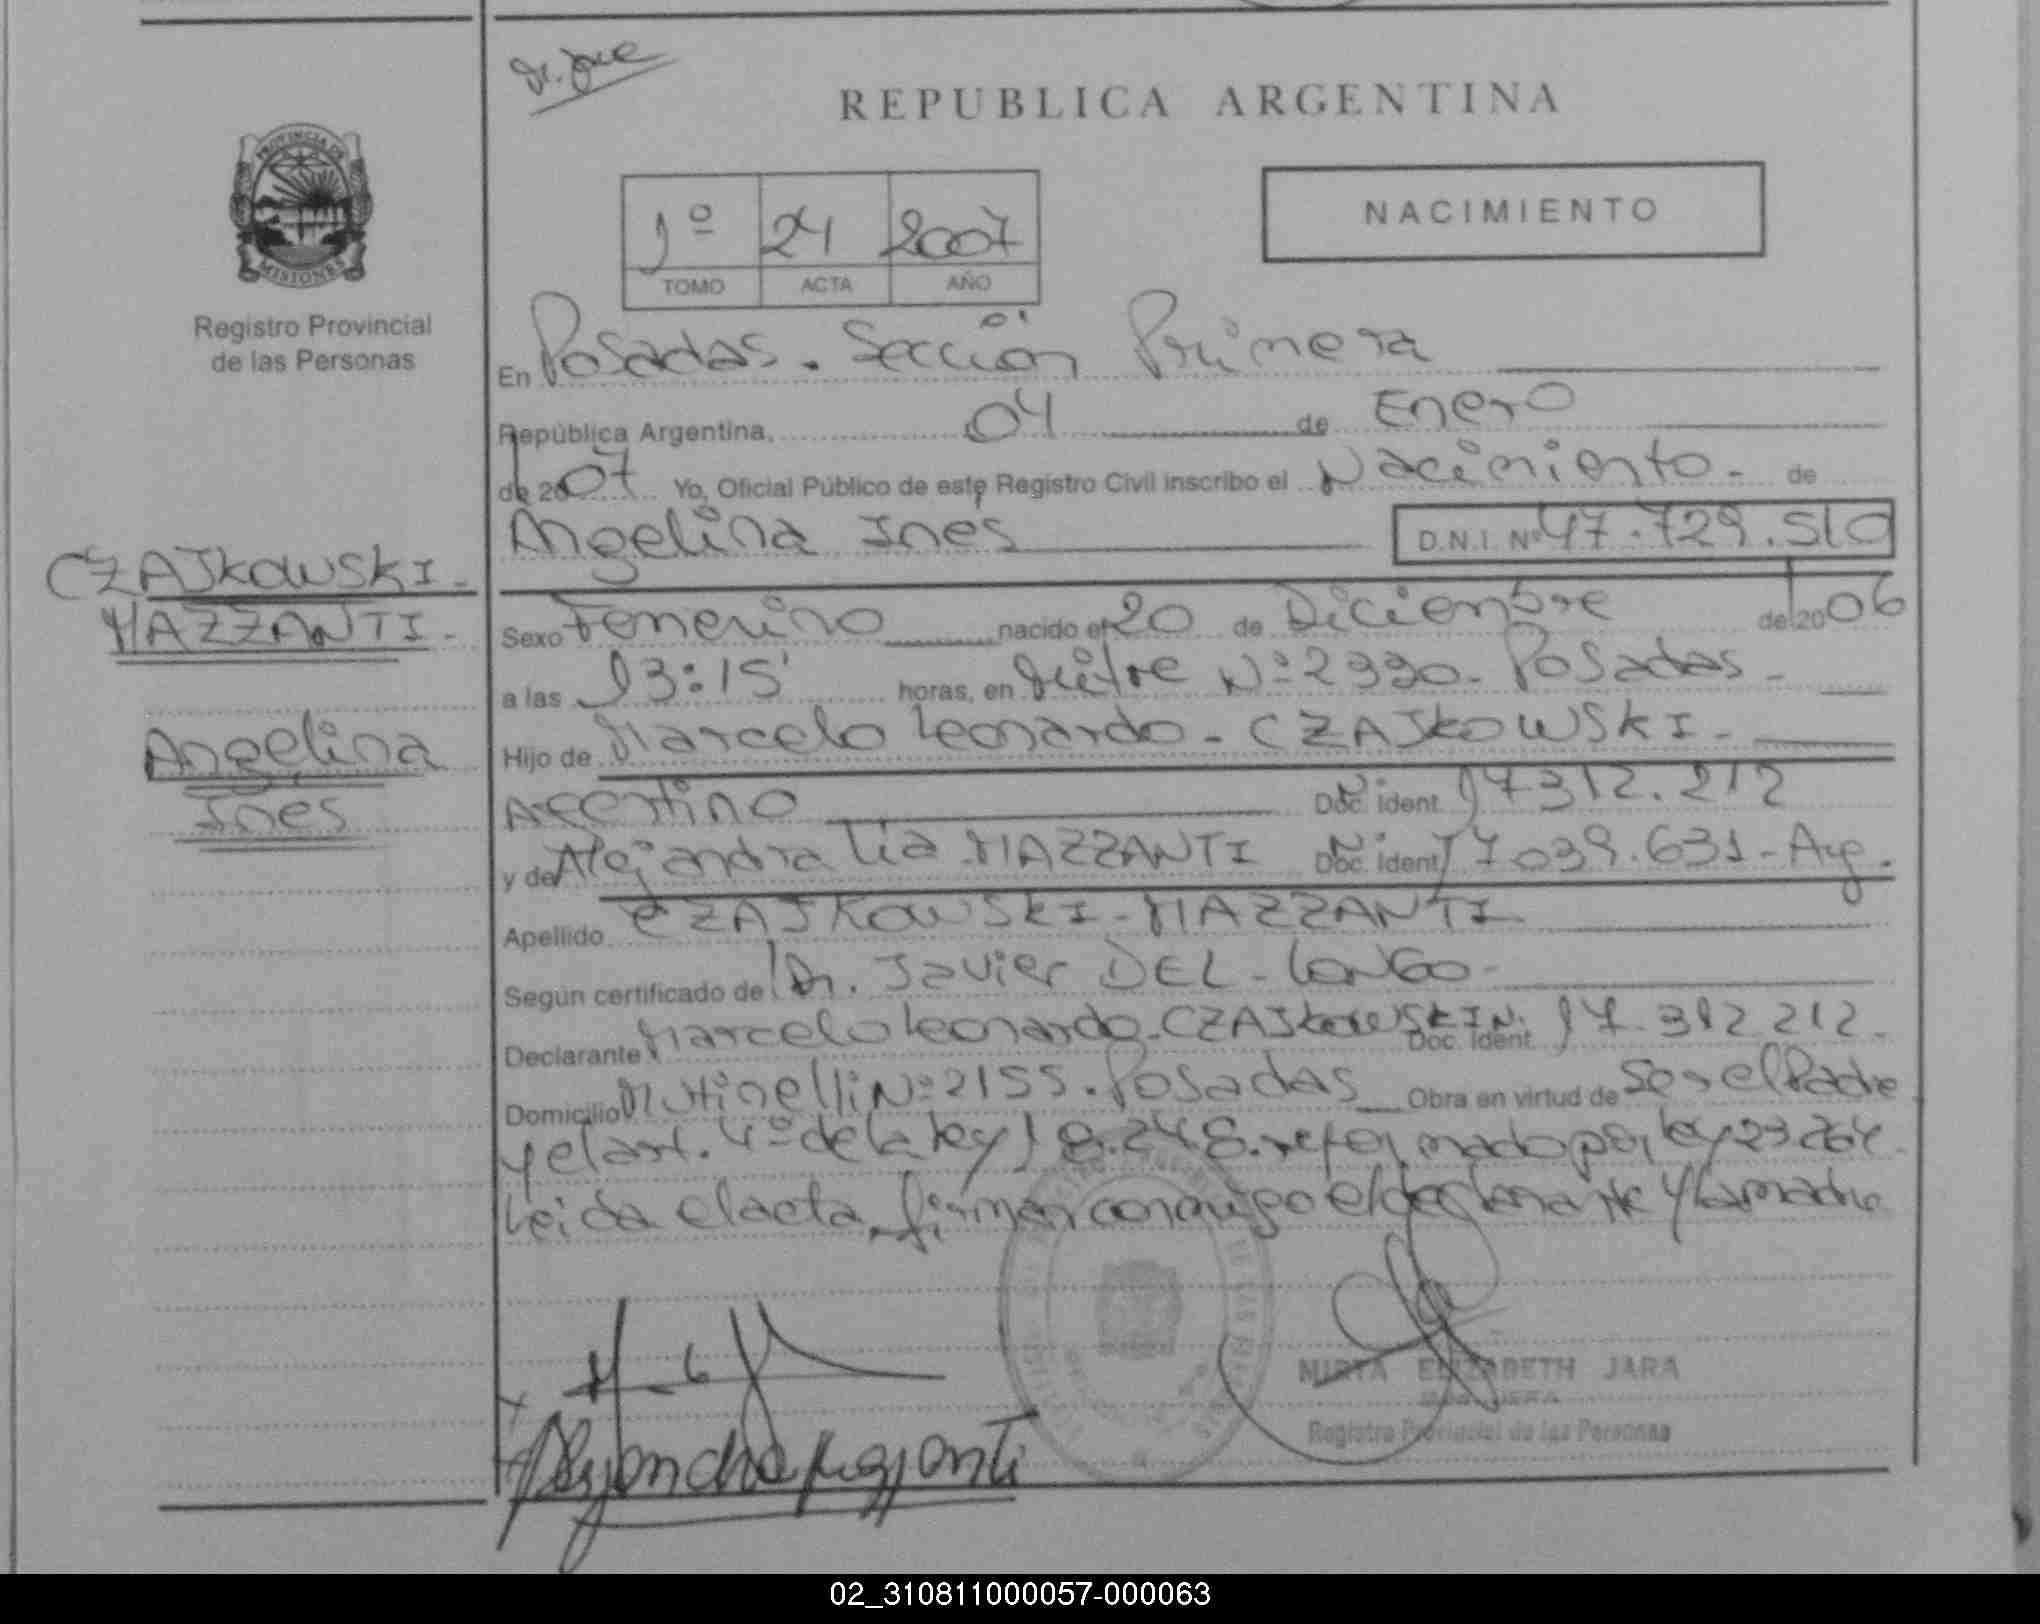 REPUBLICA ARGENTINA
PROVINCIA DE
MISIONES
Registro Provincial
de las Personas
NACIMIENTO
1º 24 2007
TOMO ACTA AÑO
En Posadas. Sección Primera
República Argentina, 04 de Enero
de 2007 Yo, Oficial Público de este Registro Civil inscribo el Nacimiento - de
Angelina Inés D.N.I. Nº 47.729.510
CZAJKOWSKI-
MAZZANTI-
Angelina
Inés
Sexo Femenino nacido el 20 de Diciembre de 2006
a las 13:15' horas, en Mitre Nº 2990- Posadas-
Hijo de Marcelo Leonardo - CZAJKOWSKI-
Argentino Doc. Ident. 17312.212
y de Alejandra Lia MAZZANTI Doc. Ident. 17.039.631-Arg.
Apellido CZAJKOWSKI-MAZZANTI
Según certificado de Dr. Javier DEL-LONGO-
Declarante Marcelo Leonardo-CZAJKOWSKI Nº Doc. Ident. 17.312 212-
Domicilio Mutinelli Nº 2155.Posadas Obra en virtud de Ser el Padre
y el art. 4º de la ley 18.248.reformado por ley 23 264-
Leida el acta, firman conmigo el declarante y la madre
MIRTA ELIZABETH JARA
Registro Provincial de las Personas
02_310811000057-000063